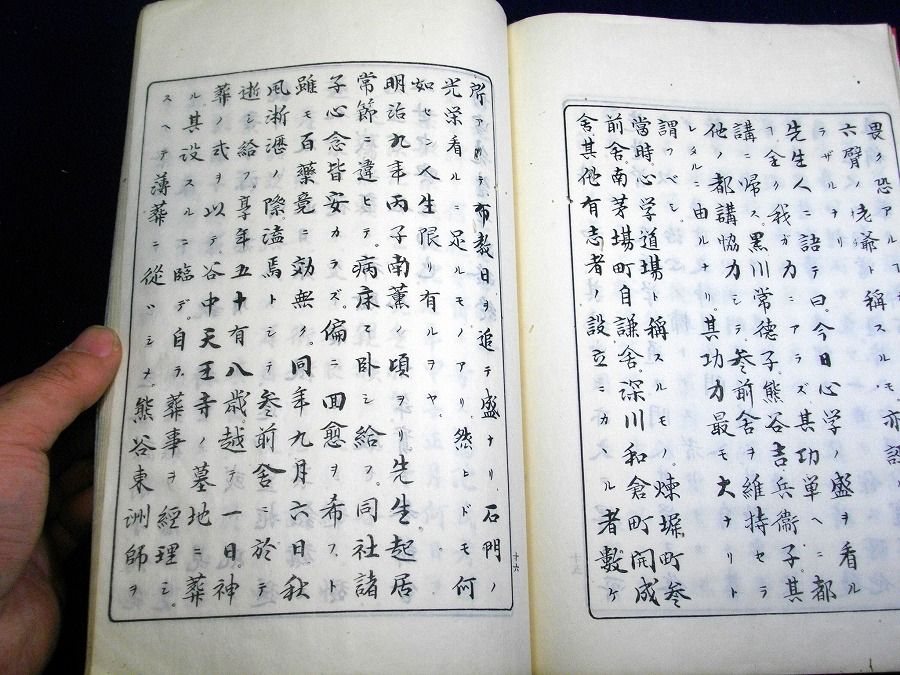 畏ク恐アル
六臂ノ晩爺ト稱スルモ亦認
ラザルナリ
先生人ニ語テ曰今日心学ノ盛ヲ看ル
ヿ全ク我ガ力ニアラズ其功単ヘニ都
講ニ帰ス黒川常徳子熊谷吉兵衞子其
他ノ都講協力シテ参前舎ヲ維持セラ
レタルニ由ルナリ其功力最モ大ナリト
謂フベシ
當時心学道場ト稱スルモノ煉塀町参
前舎南茅場町自謙舎深川和倉町開成
舎其他有志者ノ設立ニカヽル者數ケ
所アリテ布教日ヲ追テ盛ナリ石門ノ
光栄看ルニ足ルモノアリ然トドモ何
如セン人生限リ有ルヲヤ
明治九年丙子南薫ノ頃ヨリ先生起居
常節ニ違ヒテ病床ニ卧シ給フ同社諸
子心念皆安カラズ偏ニ回愈ヲ希フト
雖モ百藥竟ニ効無ク同年九月六日秋
風淅瀝ノ際溘焉トシテ参前舎ニ於テ
逝シ給フ享年五十有八歳越テ一日神
葬ノ式ヲ以テ谷中天王寺ノ墓地ニ葬
ル其設スルニ臨デ自ラ葬事ヲ經理シ
スヘテ薄葬ニ從ハシメ熊谷東洲師ヲ
十六